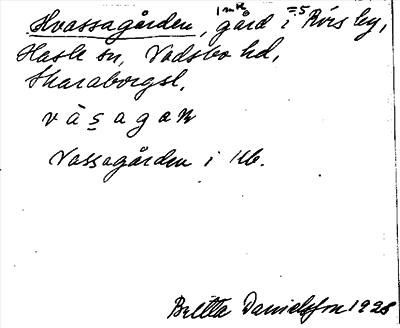 Hvassagården, gård i Rörs by,
Hassle sn, Vadsbo hd,
Skaraborgsl.
v à s a g a n
Vassagården i Hb.
Britta Danielsson 1928